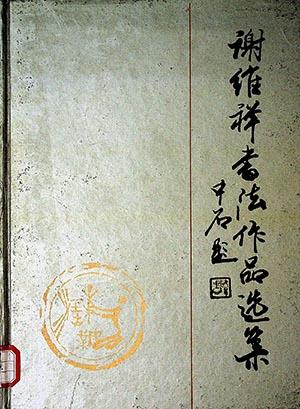 谢维祥书法作品选集
中石题